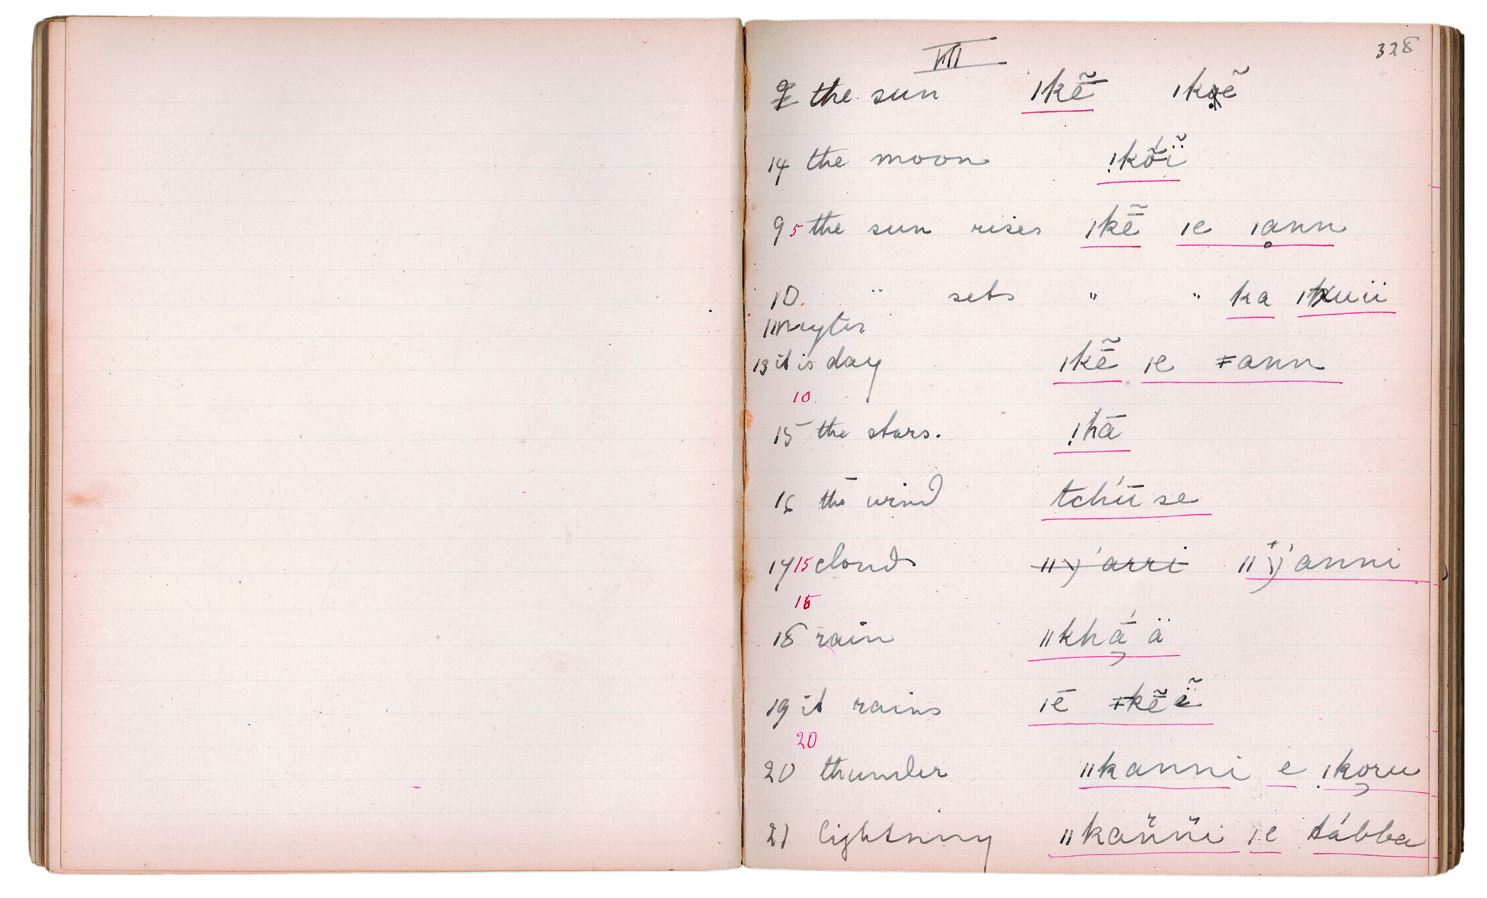 VIII 328
the sun ǀkẽ̄ ǀkoẽ
14 the moon ǃkȭï
9 5 the sun rises ǀkẽ̄ ǀe ǀann
10 " sets " " ka ǀkuii
11
13 it is day ǀkẽ̄ ǀe ǂann
10
15 the stars. ǃhā
16 the wind tchū́ se
17 15 clouds ǁ ý arri ǁ ý anni
16
18 rain ǁkhā́ ä
19 it rains ǀē ǂkẽ̄ ĩ
20
20 thunder ǁkanni e ǃkoru
21 lightning ǁkaňňi ǀe tábba